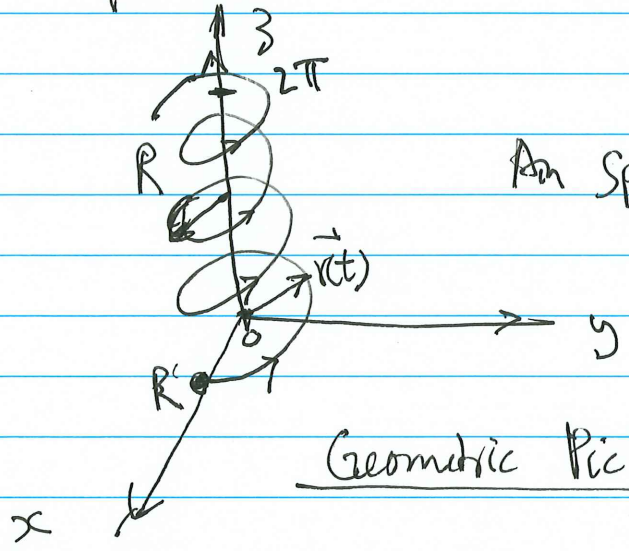 z
2π
R
An Sp
r⃗(t)
O
y
R'
Geometric Pic
x